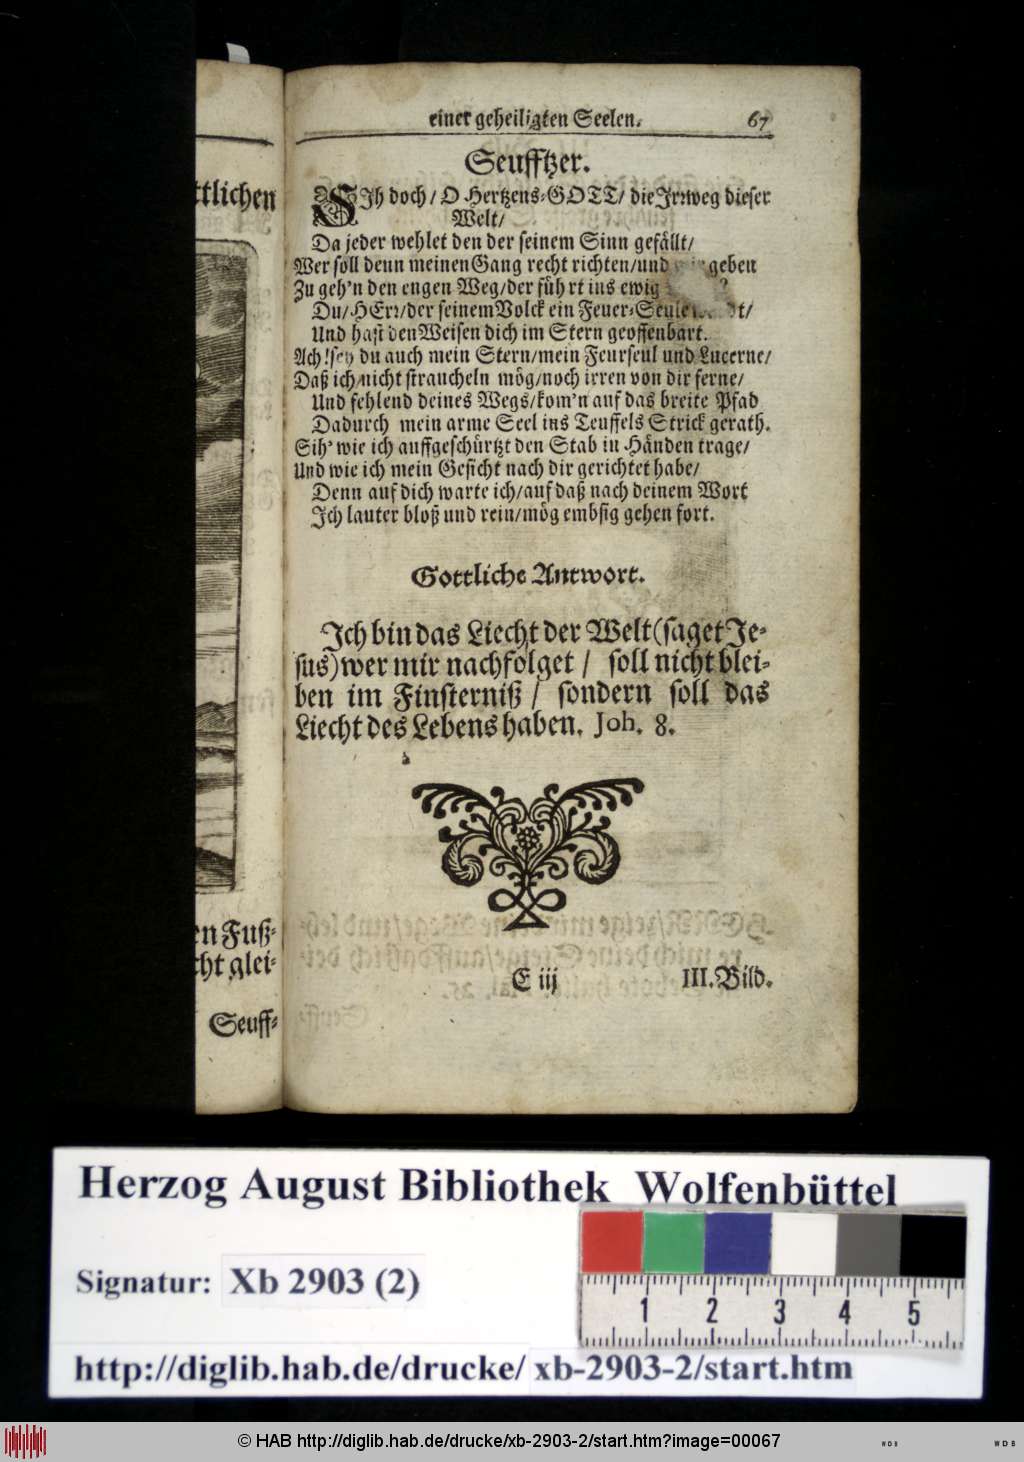 ttlichen
en Fuß⸗
cht glei⸗
Seuff⸗
einer geheiligten Seelen. 67
Seufftzer.
SIh doch/ O Hertzens⸗GOTT/ die Irrweg dieser
Welt/
Da jeder wehlet den der seinem Sinn gefällt/
Wer soll denn meinen Gang recht richten/und geben
Zu geh'n den engen Weg/der führt ins ewig
Du/HErr/der seinem Volck ein Feuer⸗Seule
Und hast den Weisen dich im Stern geoffenbart.
Ach!sey du auch mein Stern/mein Feurseul und Lucerne/
Daß ich/nicht straucheln mög/noch irren von dir ferne/
Und fehlend deines Wegs/kom'n auf das breite Pfad
Dadurch mein arme Seel ins Teuffels Strick gerath.
Sih' wie ich auffgeschürtzt den Stab in Händen trage/
Und wie ich mein Gesicht nach dir gerichtet habe/
Denn auf dich warte ich/auf daß nach deinem Wort
Ich lauter bloß und rein/mög embsig gehen fort.
Gottliche Antwort.
Ich bin das Liecht der Welt(saget Je⸗
sus)wer mir nachfolget / soll nicht blei⸗
ben im Finsterniß / sondern soll das
Liecht des Lebens haben. Joh. 8.
E iij III. Bild.
Herzog August Bibliothek Wolfenbüttel
Signatur: Xb 2903 (2)
1 2 3 4 5
http://diglib.hab.de/drucke/ xb-2903-2/start.htm
© HAB http://diglib.hab.de/drucke/xb-2903-2/start.htm?image=00067
WDB WDB